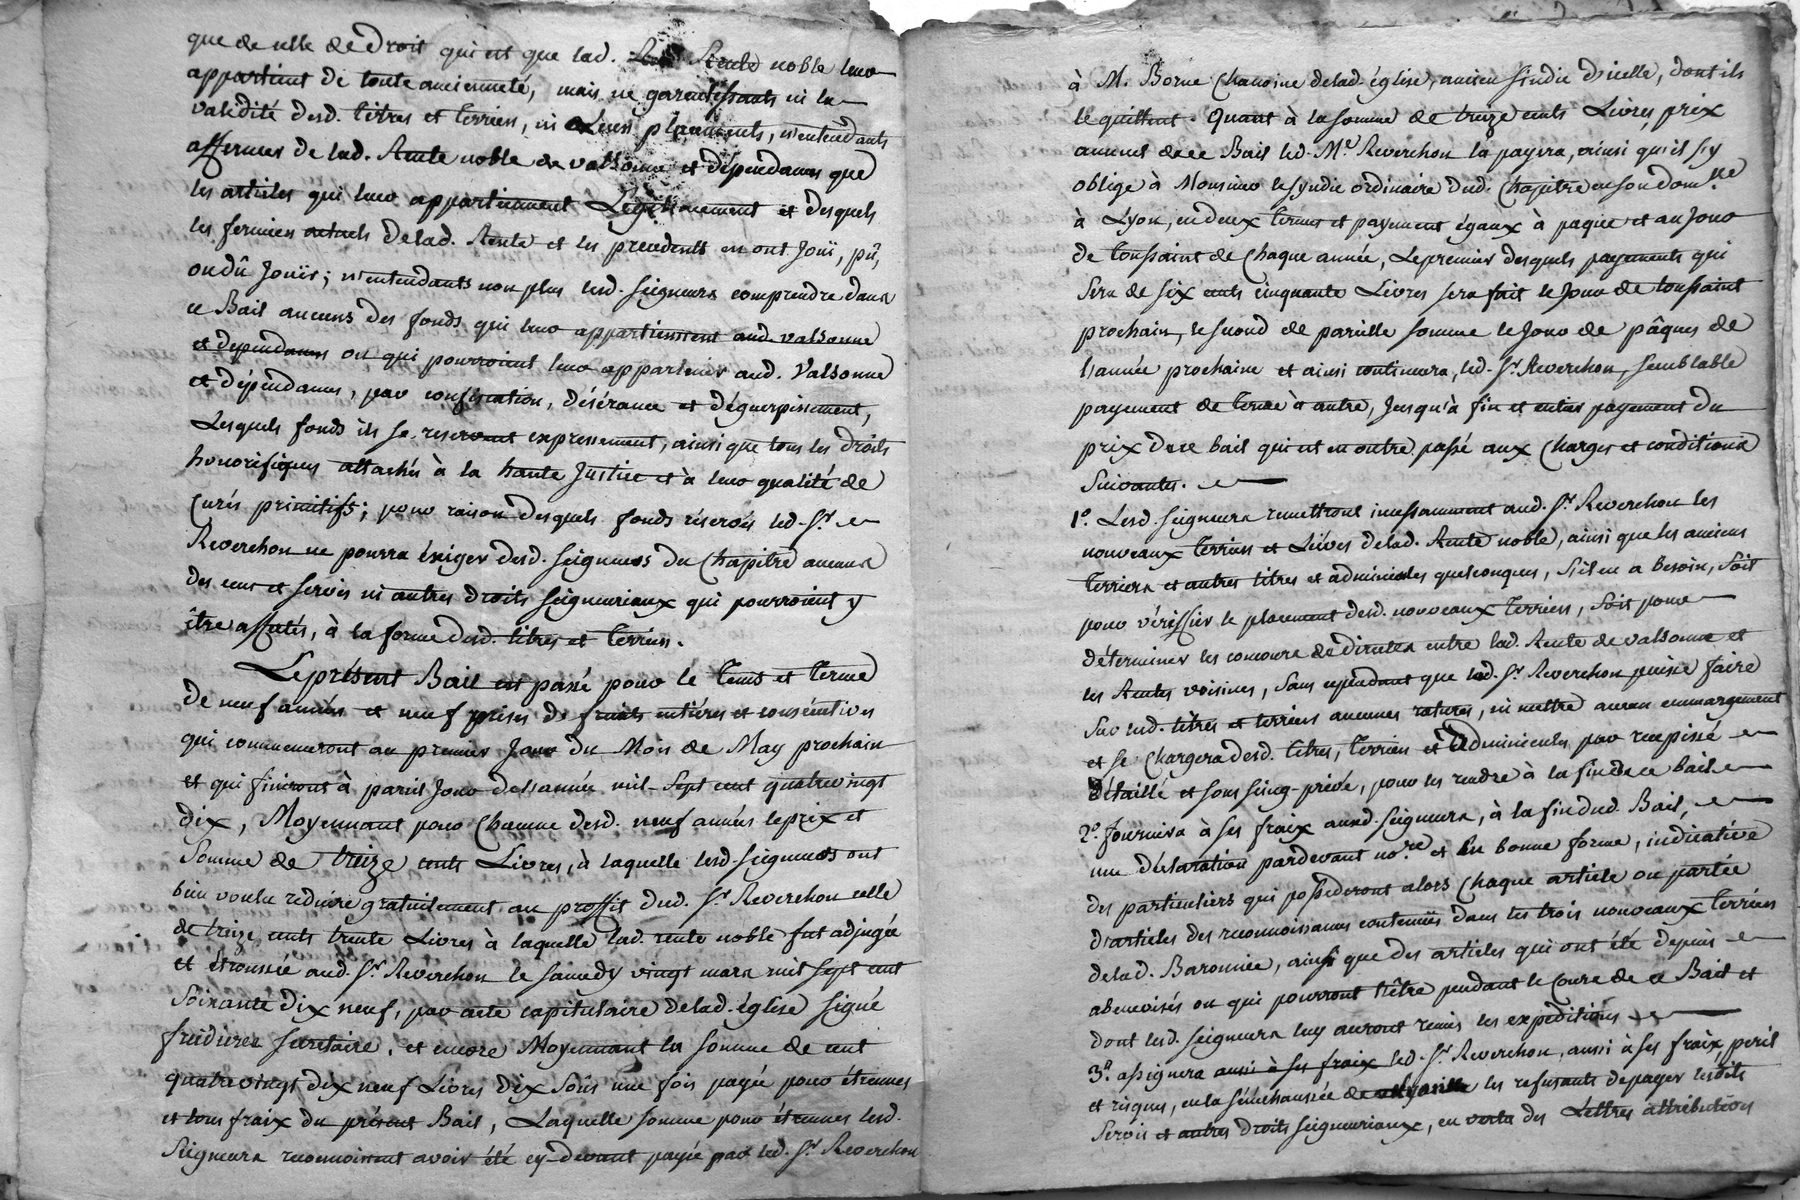 que de celle de Droit qui est que lad. Rente noble leur
appartient de toute ancienneté, mais ne garentissants ni la
validité desd. titres et terriers, ni leurs placements, n'entendants
affermer de lad. Rente noble de valsonne et dépendances que
les articles qui leur appartiennent Légitimement et desquels
les fermiers actuels de lad. Rente et les precedents en ont Joüi, pû,
ou dû Joüir; n'entendants non plus lesd. seigneurs comprendre dans
ce Bail aucuns des fonds qui leur appartiennent aud. valsonne
et dependances ou qui pourroient leur appartenir aud. Valsonne
et dépendances, par confiscation, désérance et déguerpissement,
Lesquels fonds ils se reservent expressement, ainsi que tous les droits
honorifiques attachés à la haute Justice et à leur qualité de
Curés primitifs; pour raison desquels fonds réservés led. Sr.
Reverchon ne pourra éxiger desd. seigneurs du Chapitre aucuns
des cens et servis ni autres droits seigneuriaux qui pourroient y
être affectés, à la forme desd. titres et terriers.
Le présent Bail est passé pour le tems et terme
de neuf années et neuf prises de fruits entiéres et consécutives
qui commenceront au premier Jour du Mois de May prochain
et qui finiront à pareil Jour de l'année mil-sept cent quatrevingt
dix, Moyennant pour Chacune desd. neuf années le prix et
Somme de treize cents Livres, à laquelle lesd. seigneurs ont
bien voulu réduire gratuitement au proffit dud. Sr. Reverchon celle
de treize cents trente Livres à laquelle lad. rente noble fut adjugée
et étroussée aud. Sr. Reverchon le samedy vingt mars mil sept cent
Soixante dix neuf, par acte capitulaire de lad. église signé
secretaire, et encore Moyennant la somme de cent
quatrevingt dix neuf Livres dix Sols une fois payée pour étrennes
et tous fraix du présent Bail, Laquelle somme pour étrennes lesd.
Seigneurs reconnoissent avoir été cy-devant payée par led. Sr. Reverchon
à M. Borne Chanoine de lad. église, ancien sindic d'icelle, dont ils
le quittent. Quant à la somme de treize cents Livres, prix
annuel de ce Bail led. Me. Reverchon la payera, ainsi qu'il s'y
oblige à Monsieur le syndic ordinaire dud. Chapitre en son dom.le
à Lyon, en deux termes et payement égaux à paque et au Jour
de toussaint de Chaque année, Le premier desquels payements qui
Sera de six cents cinquante Livres sera fait le Jour de toussaint
prochain, le second de pareille somme le Jour de pâques de
l'année prochaine et ainsi continuera, led. Sr. Reverchon, semblable
payement de terme à autre, Jusqu'à fin et entier payement du
prix de ce bail qui est en outre passé aux Charges et conditions
Suivantes.
1°. Lesd. seigneurs remettront incessamment aud. Sr. Reverchon les
nouveaux terriers et Liéves de lad. Rente noble, ainsi que les anciens
terriers et autres titres et adminicules quelconques, s'il en a besoin, soit
pour vérifier le placement desd. nouveaux terriers, soit pour
déterminer les concours de directes entre lad. Rente de valsonne et
les Rentes voisines, sans cependant que led. Sr. Reverchon puisse faire
Sur lesd. titres et terriers aucunes ratures, ni mettre aucun emmargement
et se Chargera desd. titres, terriers et adminicules par recepissé
détaillé et sous seing-privé, pour les rendre à la fin de ce bail.
2°. fournira à ses fraix auxd. seigneurs, à la fin dud. Bail,
une déclaration pardevant no.re et en bonne forme, indicative
des particuliers qui possederont alors Chaque article ou partie
d'articles des reconnoissances contenües dans les trois nouveaux terriers
de lad. Baronnie, ainsi que des articles qui ont été depuis
abenevisés ou qui pourront l'être pendant le Cours de ce Bail et
dont lesd. seigneurs luy auront remis les expéditions
3°. assignera aussi à ses fraix led. Sr. Reverchon, aussi à ses fraix, peril
et risques, en la sénéchaussée de les refusants de payer lesdits
Servis et autres droits seigneuriaux, en vertu des Lettres attribution